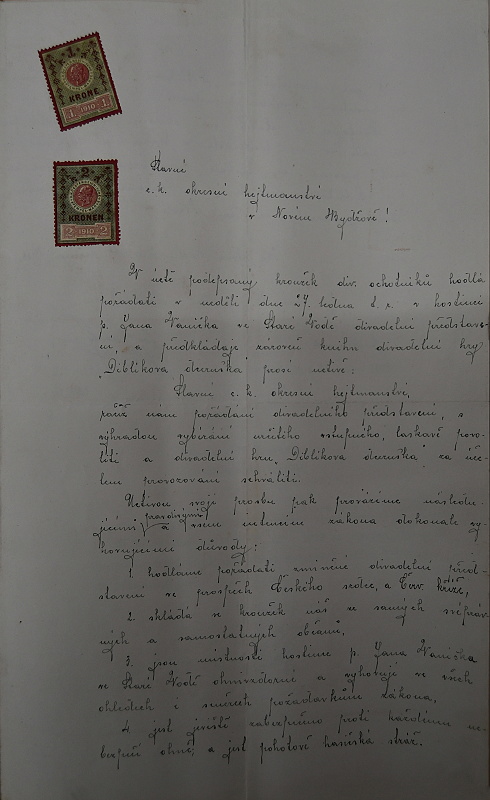 1
KRONE
1. 1910 1.
2
KRONEN
2 1910 2
Slavné
c. k. okresní hejtmanství
v Novém Bydžově!
V úctě podepsaný kroužek div. ochotníků hodlá
pořádati v neděli dne 27. ledna t. r. v hostinci
p. Jana Vaníčka ve Staré Vodě divadelní představe-
ní, a předkládaje zároveň knihu divadelní hry
„Diblíkova dceruška" prosí uctivě:
Slavné c. k. okresní hejtmanství,
račiž nám pořádání divadelního představení, s
výhradou vybírání určitého vstupného, laskavě povo-
liti a divadelní hru „Diblíkova dceruška" za úče-
lem provozování schváliti.
Uctivou svoji prosbu pak provázíme následu-
jícími pravdivými a všem intencím zákona dokonale vy-
hovujícími důvody:
1. hodláme pořádati zmíněné divadelní před-
stavení ve prospěch Českého srdce, a Červ. kříže,
2. skládá se kroužek náš ze samých svépráv-
ných a samostatných občanů,
3. jsou místnosti hostince p. Jana Vaníčka
ve Staré Vodě ohnivzdorné a vyhovují ve všech
ohledech i směrech požadavkům zákona,
4. jest jeviště zabezpečeno proti každému ne-
bezpečí ohně, a jest pohotově hasičská stráž.